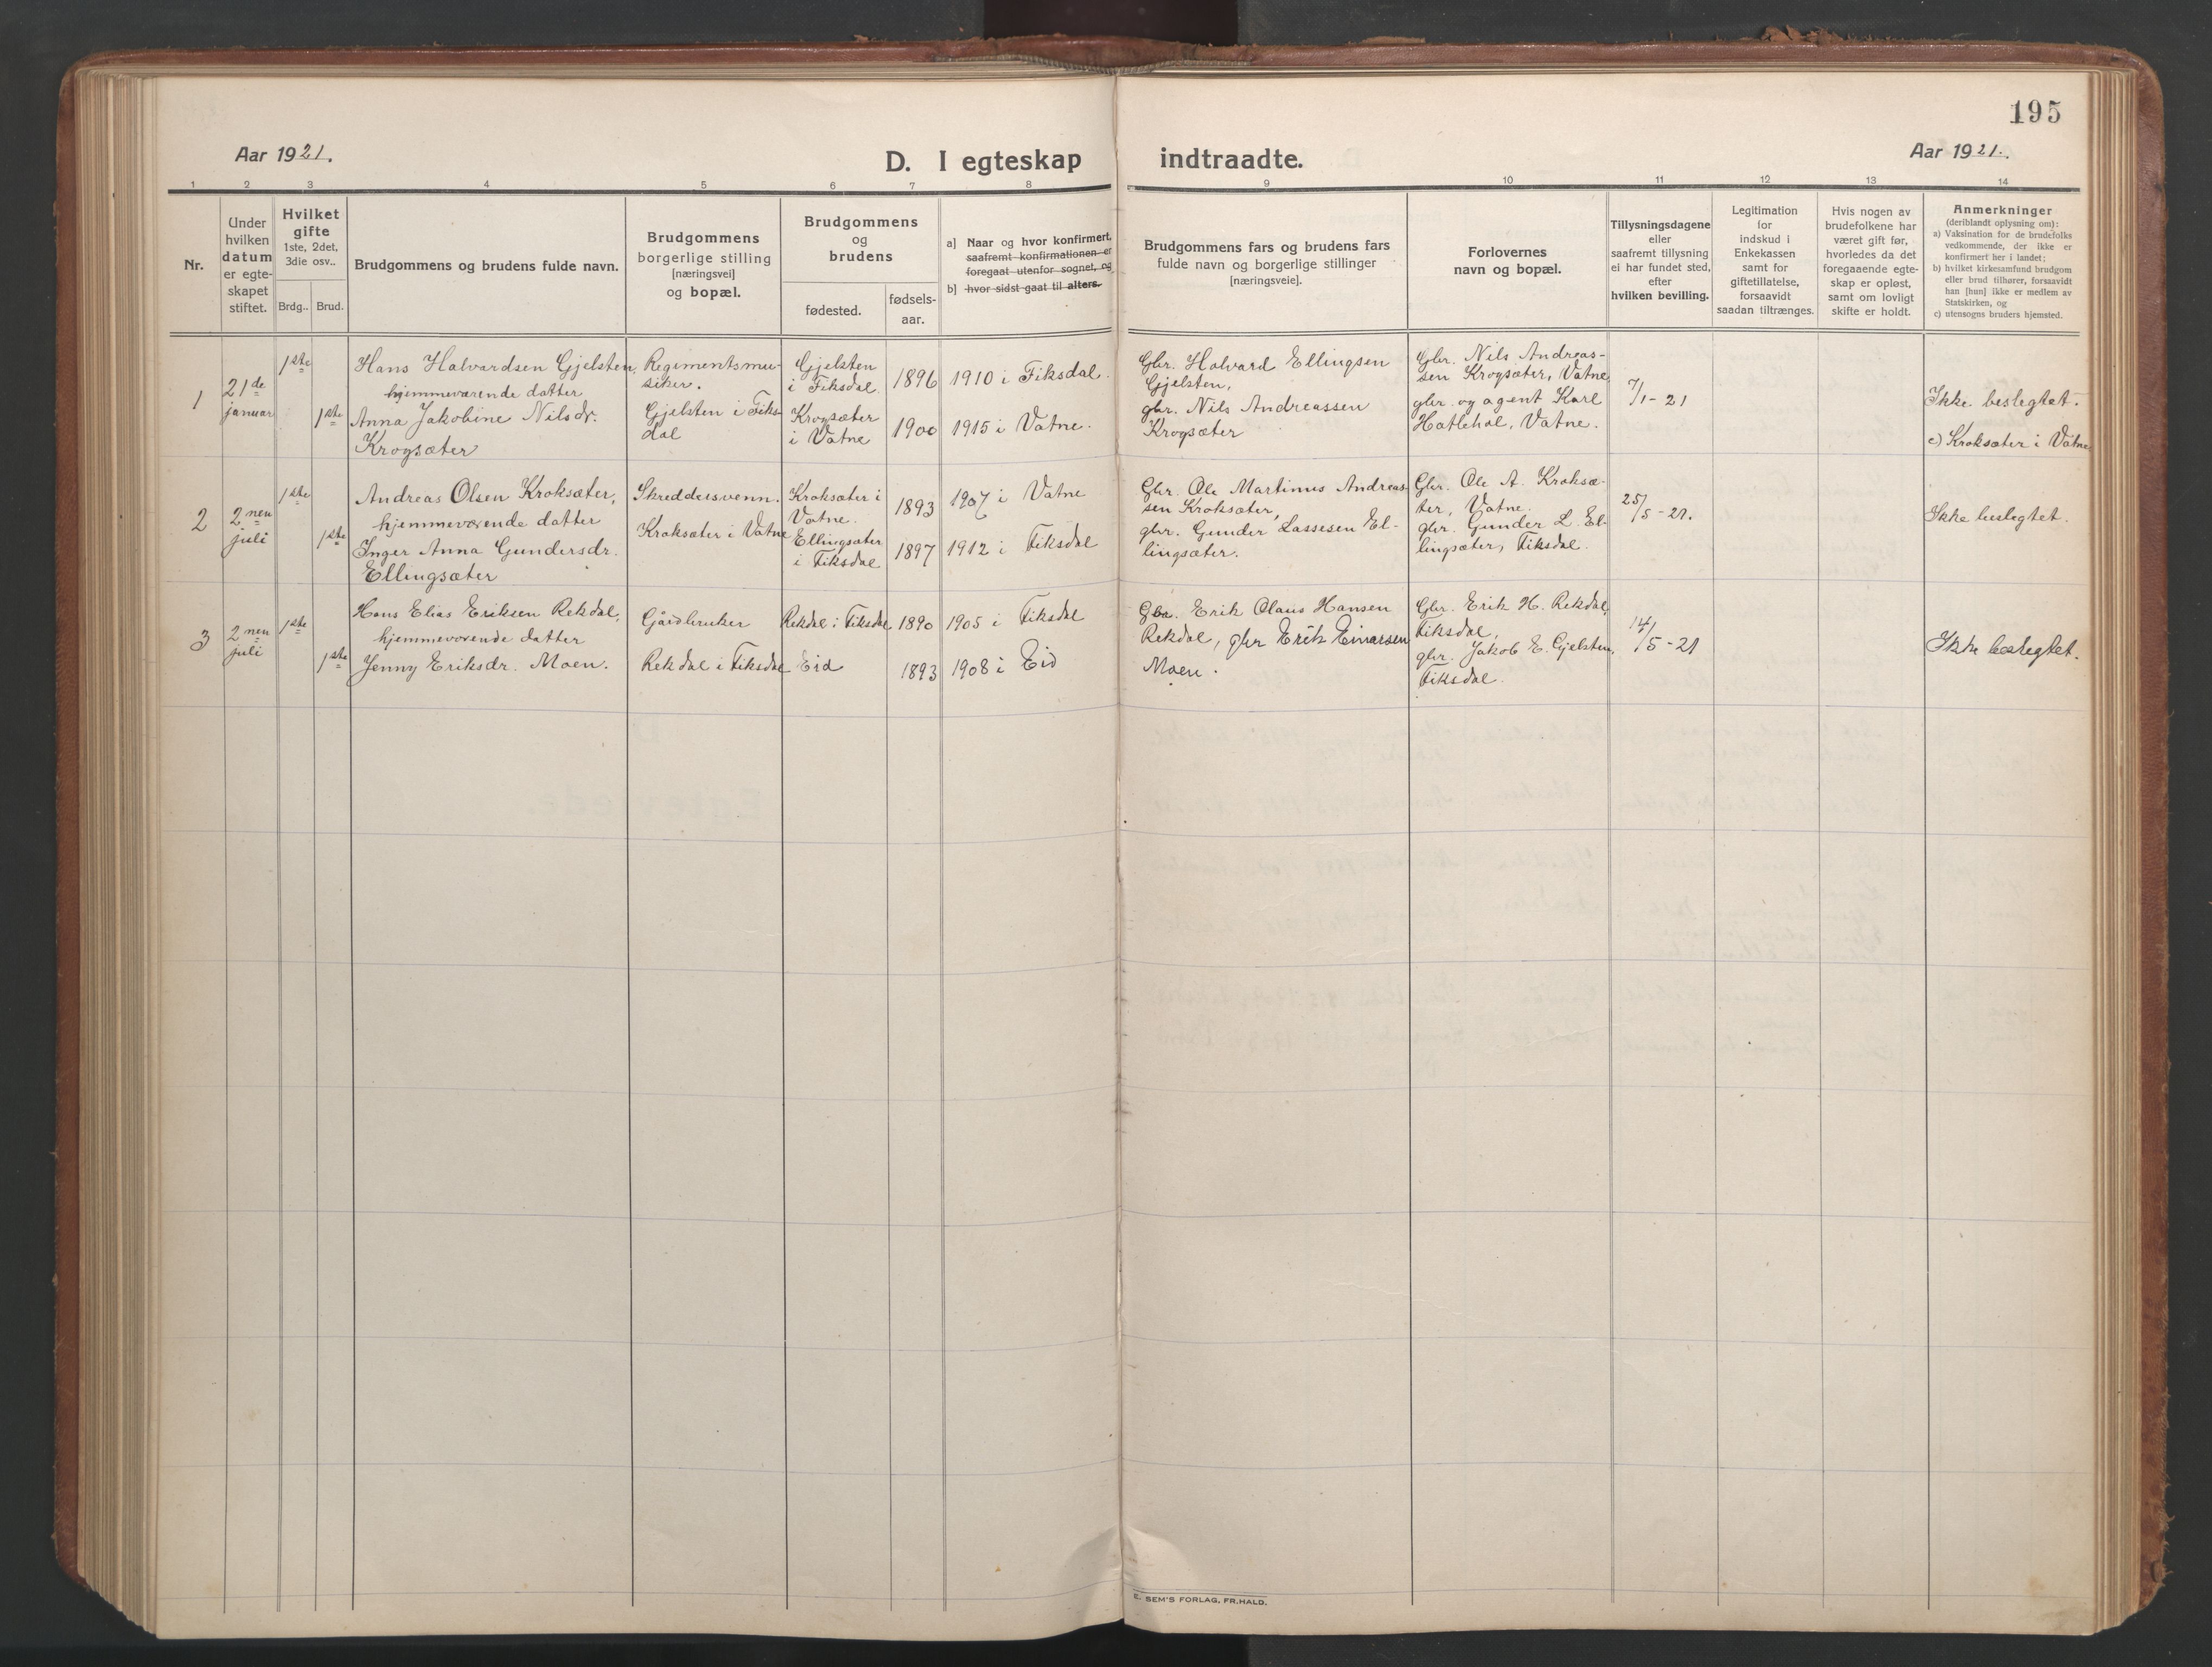 195
Aar 1921.
D. I egteskap indtraadte.
Aar 1921.
1 2 3 4 5 6 7 8 9 10 11 12 13 14
Nr.
Under
hvilken
datum
er egte-
skapet
stiftet.
Hvilket
gifte
1ste, 2det,
3die osv..
Brdg.. Brud.
Brudgommens og brudens fulde navn.
Brudgommens
borgerlige stilling
[næringsvei]
og bopæl.
Brudgommens
og
brudens
fødested.
fødsels-
aar.
a] Naar og hvor konfirmert,
saafremt konfirmationen er
foregaat utenfor sognet, og
b] hvor sidst gaat til alters.
Brudgommens fars og brudens fars
fulde navn og borgerlige stillinger
[næringsveie].
Forlovernes
navn og bopæl.
Tillysningsdagene
eller
saafremt tillysning
ei har fundet sted,
efter
hvilken bevilling.
Legitimation
for
indskud i
Enkekassen
samt for
giftetillatelse,
forsaavidt
saadan tiltrænges.
Hvis nogen av
brudefolkene har
været gift før,
hvorledes da det
foregaaende egte-
skap er opløst,
samt om lovligt
skifte er holdt.
Anmerkninger
(deriblandt oplysning om):
a) Vaksination for de brudefolks
vedkommende, der ikke er
konfirmert her i landet;
b) hvilket kirkesamfund brudgom
eller brud tilhører, forsaavidt
han [hun] ikke er medlem av
Statskirken, og
c) utensogns bruders hjemsted.
1
21de
januar
1ste
1ste
Hans Halvardsen Gjelsten,
hjemmeværende datter
Anna Jakobine Nilsdr.
Krogsæter
Regimentsmu-
siker.
Gjelsten i Fiks-
dal
Gjelsten
i Fiksdal
Krogsæter
i Vatne
1896
1900
1910 i Fiksdal.
1915 i Vatne.
Gbr. Halvard Ellingsen
Gjelsten,
gbr. Nils Andreassen
Krogsæter
Gbr. Nils Andreas-
sen Krogsæter, Vatne,
gbr. og agent Karl
Hatlehol, Vatne.
7/1-21
Ikke beslegtet.
c) Kroksæter i Vatne.
2
2nen
juli
1ste
1ste
Andreas Olsen Kroksæter,
hjemmeværende datter
Inger Anna Gundersdr.
Ellingsæter
Skreddersvenn.
Kroksæter i Vatne
Kroksæter i
Vatne.
Ellingsæter
i Fiksdal
1893
1897
1907 i Vatne
1912 i Fiksdal
Gbr. Ole Martinus Andreas-
sen Kroksæter,
gbr. Gunder Lassesen El-
lingsæter.
Gbr. Ole A. Kroksæ-
ter, Vatne.
gbr. Gunder L. El-
lingsæter, Fiksdal.
25/5-21.
Ikke beslegtet.
3
2nen
juli
1ste
1ste
Hans Elias Eriksen Rekdal,
hjemmeværende datter
Jenny Eriksdr. Moen.
Gårdbruker
Rekdal i Fiksdal
Rekdal i Fiksdal
Eid
1890
1893
1905 i Fiksdal
1908 i Eid
Gbr. Erik Olaus Hansen
Rekdal, gbr Erik Einarsen
Moen.
Gbr. Erik H. Rekdal,
Fiksdal,
gbr. Jakob E. Gjelsten,
Fiksdal.
14/5-21
Ikke beslegtet.
E. SEM'S FORLAG, FR.HALD.